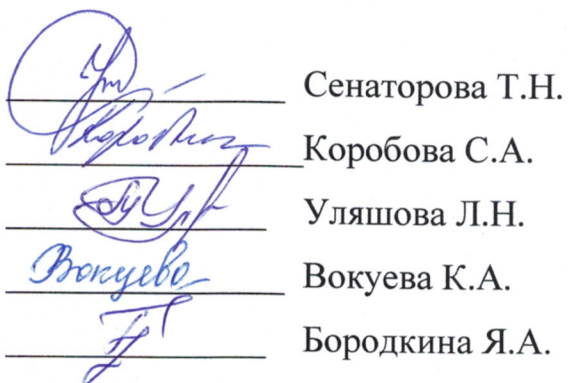 Сенаторова Т.Н.
Коробова С.А.
Уляшова Л.Н.
Вокуева Вокуева К.А.
Бородкина Я.А.